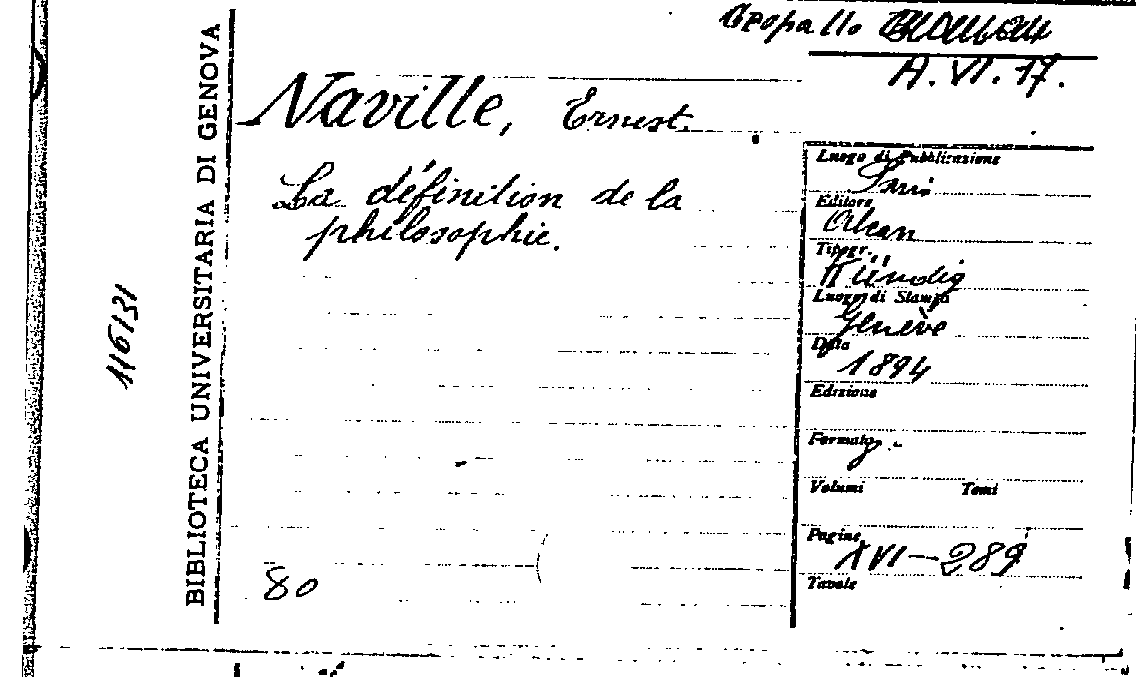 Cropallo
A.VI.17.
Naville, Ernest.
La définition de la
philosophie.
BIBLIOTECA UNIVERSITARIA DI GENOVA
116131
80
Luogo di Pubblicazione
Paris
Editore
Alcan
Tipogr.
Kündig
Luogo di Stampa
Genève
Data
1894
Edizione
Formato
Volumi Tomi
Pagine
XVI-289
Tavole